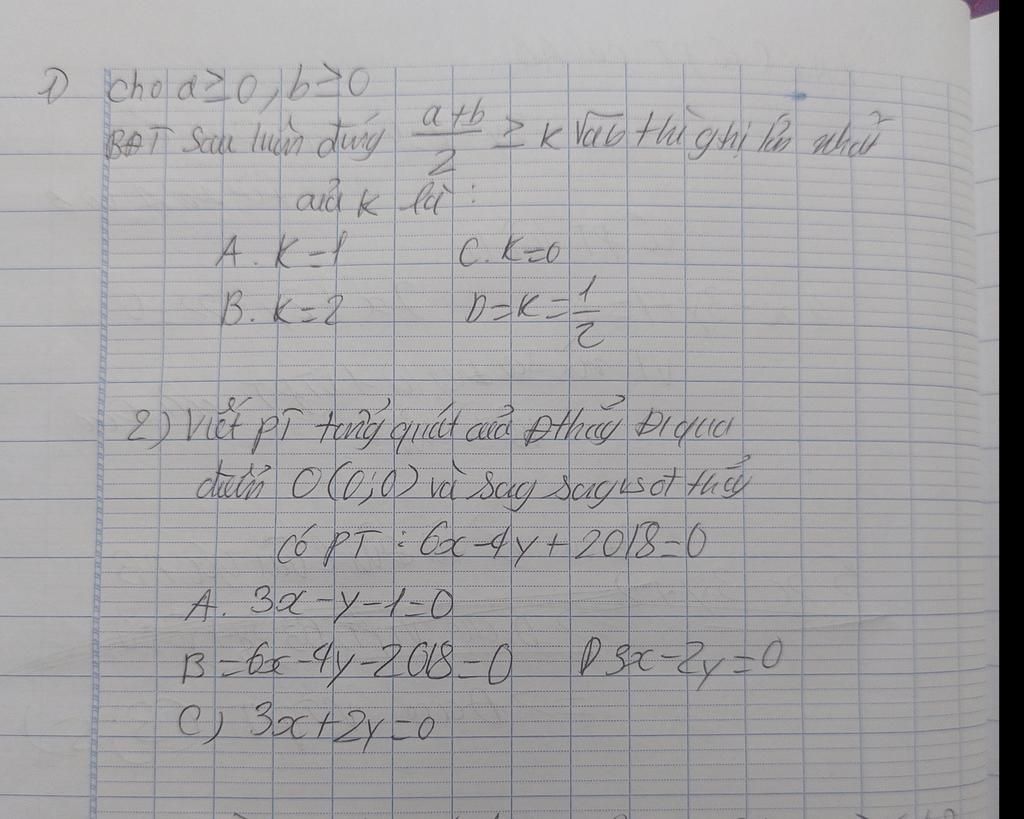 1) cho a ≥ 0, b ≥ 0
BĐT sau luôn đúng a+b/2 ≥ k √ab thì ghị lớn nhất
của k là :
A. K = 1 C. K = 0
B. K = 2 D = K = 1/2
2) Viết PT tổng quát của Đthẳg Đi qua
điểm O (0;0) và sag sag vs đt thẳg
Có PT : 6x - 4y + 2018 = 0
A. 3x - y - 1 = 0
B = 6x - 4y - 2018 = 0 D 3x - 2y = 0
C) 3x + 2y = 0